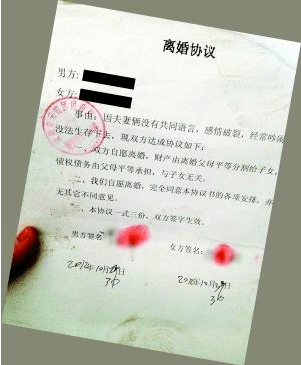 离婚协议
男方:
女方:
事由:因夫妻俩没有共同语言,感情破裂,经常吵
没法生存下去,现双方达成协议如下:
一、双方自愿离婚,财产由离婚父母平等分割给子女,
债权债务由父母平等承担,与子女无关。
二、我们自愿离婚,完全同意本协议书的各项安排,亦
无其它不同意见。
三、本协议一式三份,双方签字生效。
男方签名: 女方签名:
2012年10月 日 2012年10月 日
30 30